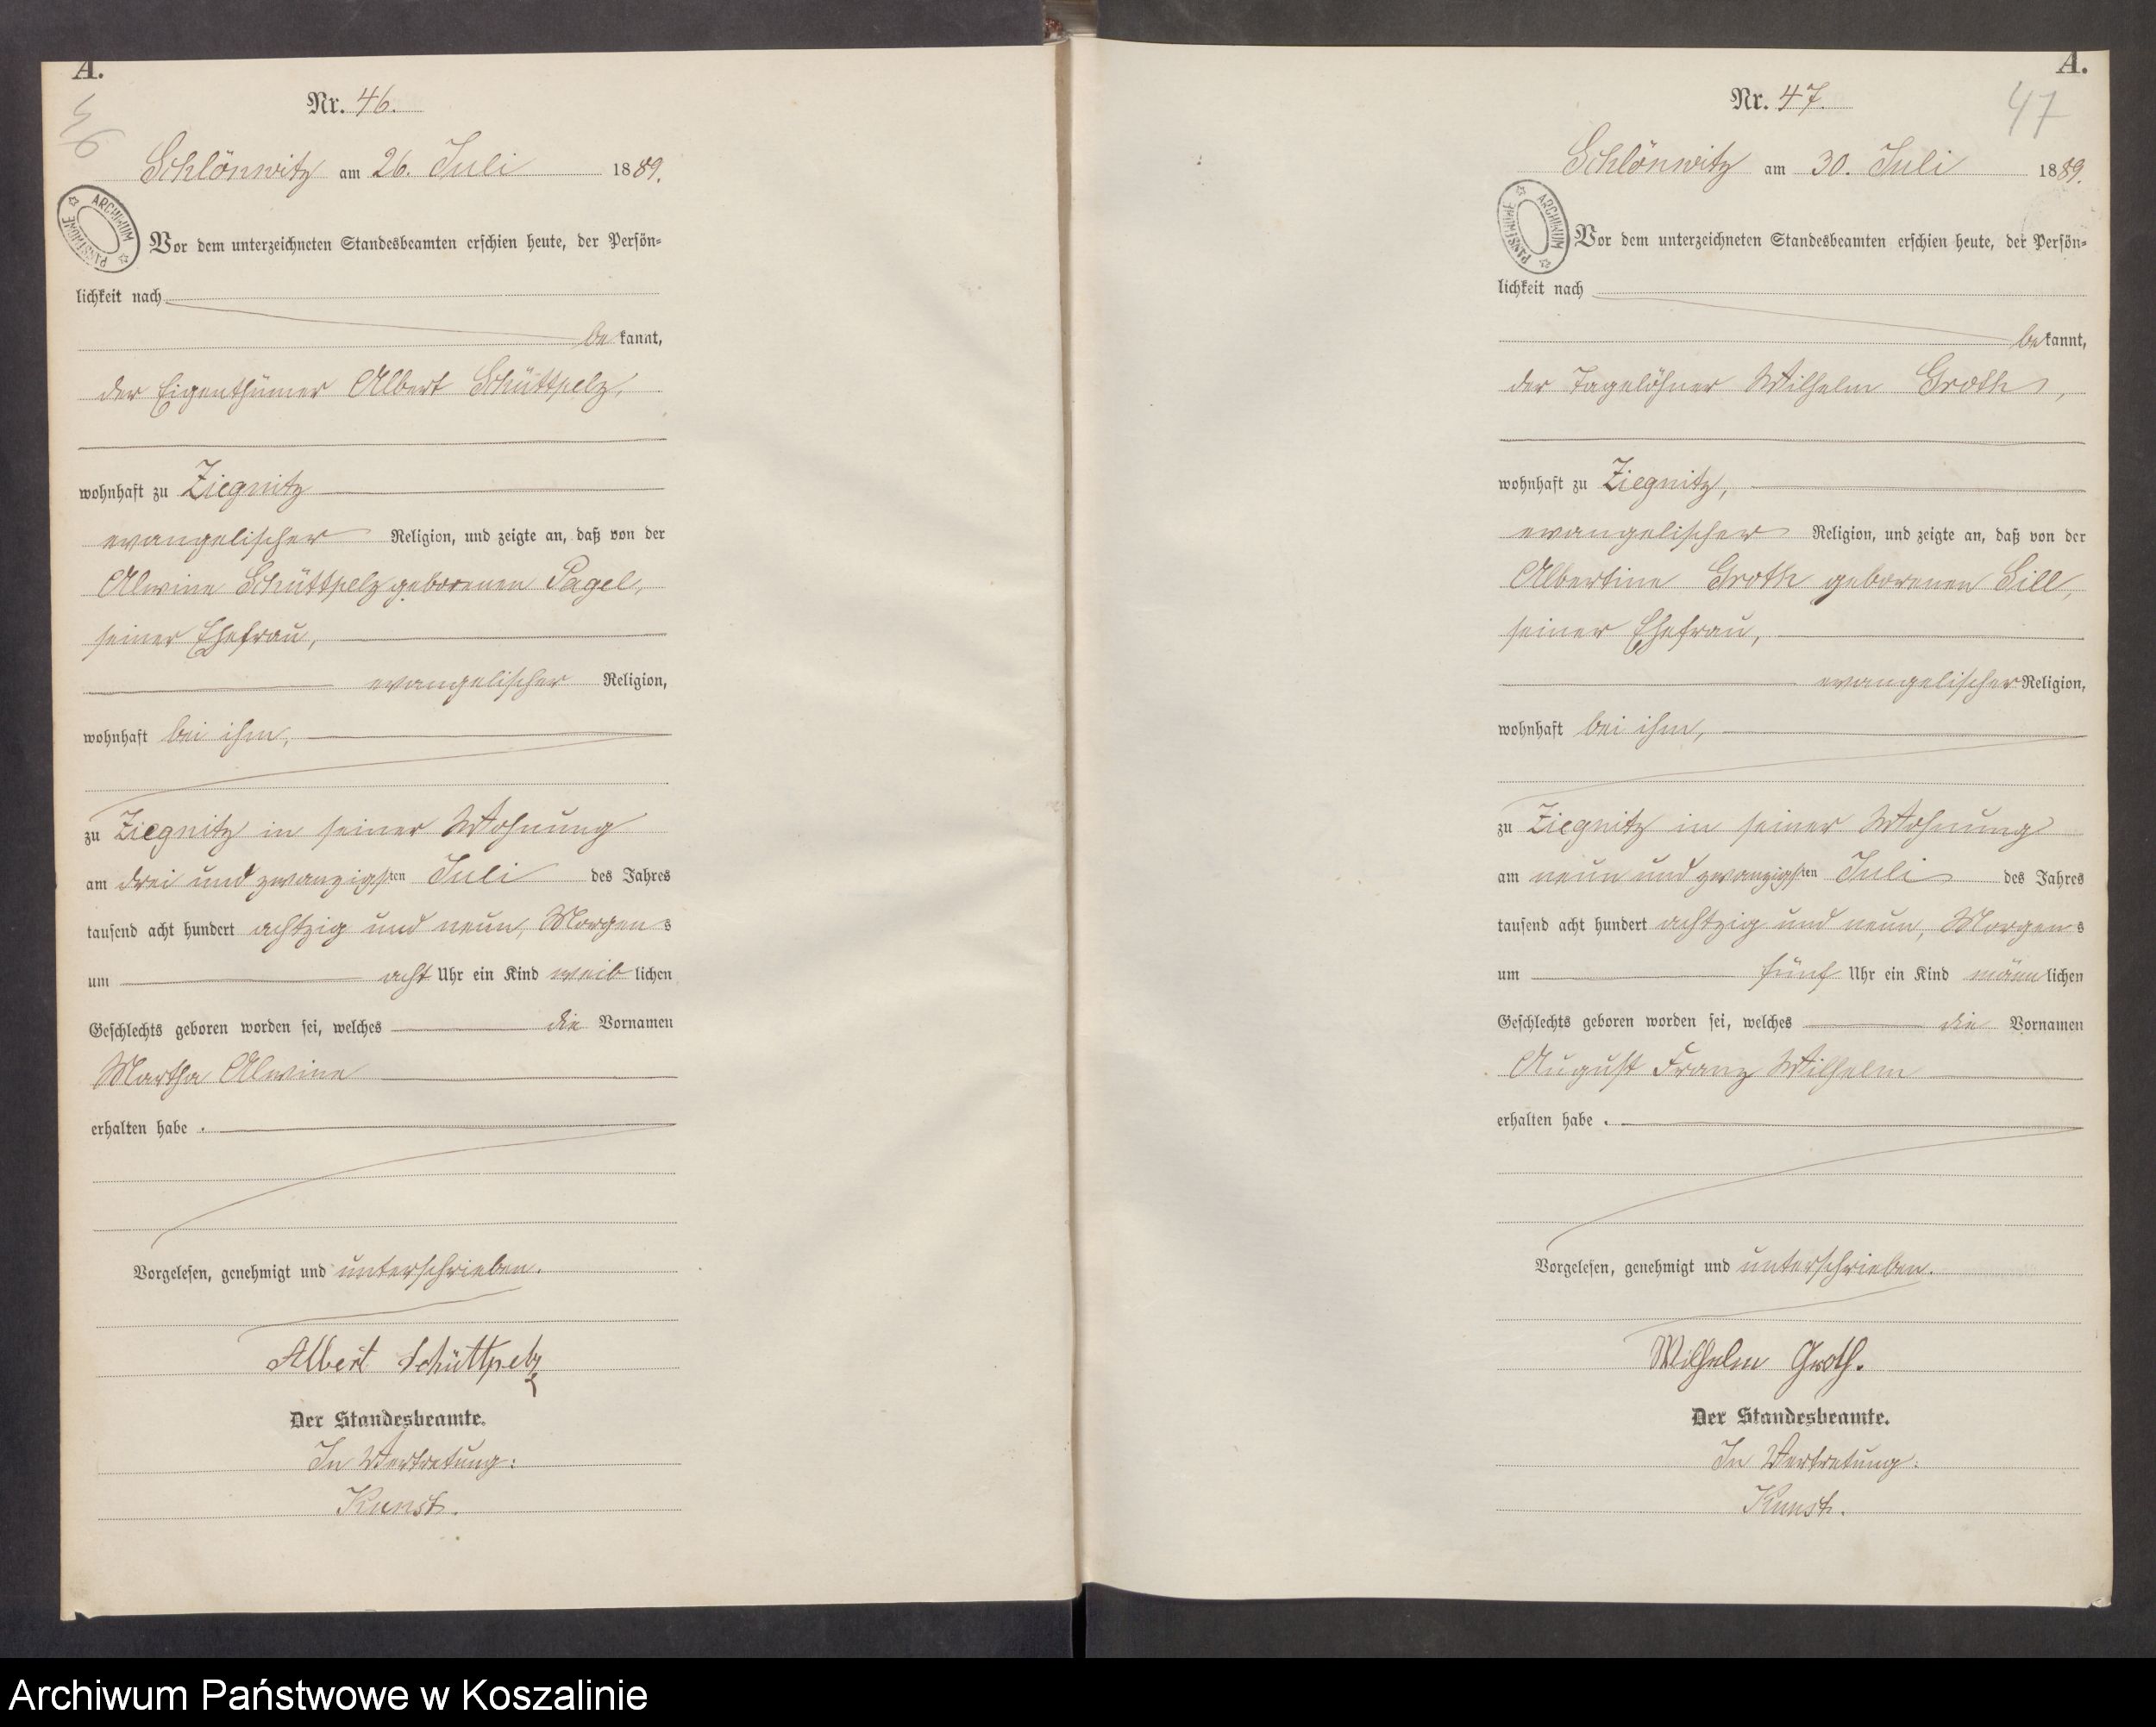 A.
46
Nr. 46.
Schlönwitz am 26. Juli 1889.
ARCHIWUM PAŃSTWOWE
Vor dem unterzeichneten Standesbeamten erschien heute, der Persön-
lichkeit nach
be kannt,
der Eigenthümer Albert Schüttpelz,
wohnhaft zu Ziegnitz
evangelischer Religion, und zeigte an, daß von der
Alwine Schüttpelz geborenen Pagel,
seiner Ehefrau,
evangelischer Religion,
wohnhaft bei ihm,
zu Ziegnitz in seiner Wohnung
am drei und zwanzigsten Juli des Jahres
tausend acht hundert achtzig und neun, Morgens
um acht Uhr ein Kind weiblichen
Geschlechts geboren worden sei, welches die Vornamen
Martha Alwine
erhalten habe .
Vorgelesen, genehmigt und unterschrieben.
Albert Schüttpelz
Der Standesbeamte.
In Vertretung:
Kunst.
A.
47
Nr. 47.
Schlönwitz am 30. Juli 1889.
ARCHIWUM PAŃSTWOWE
Vor dem unterzeichneten Standesbeamten erschien heute, der Persön-
lichkeit nach
be kannt,
der Tagelöhner Wilhelm Groth,
wohnhaft zu Ziegnitz,
evangelischer Religion, und zeigte an, daß von der
Albertine Groth geborenen Sill,
seiner Ehefrau,
evangelischer Religion,
wohnhaft bei ihm,
zu Ziegnitz in seiner Wohnung
am neun und zwanzigsten Juli des Jahres
tausend acht hundert achtzig und neun, Morgens
um fünf Uhr ein Kind männlichen
Geschlechts geboren worden sei, welches die Vornamen
August Franz Wilhelm
erhalten habe .
Vorgelesen, genehmigt und unterschrieben.
Wilhelm Groth.
Der Standesbeamte.
In Vertretung:
Kunst.
Archiwum Państwowe w Koszalinie